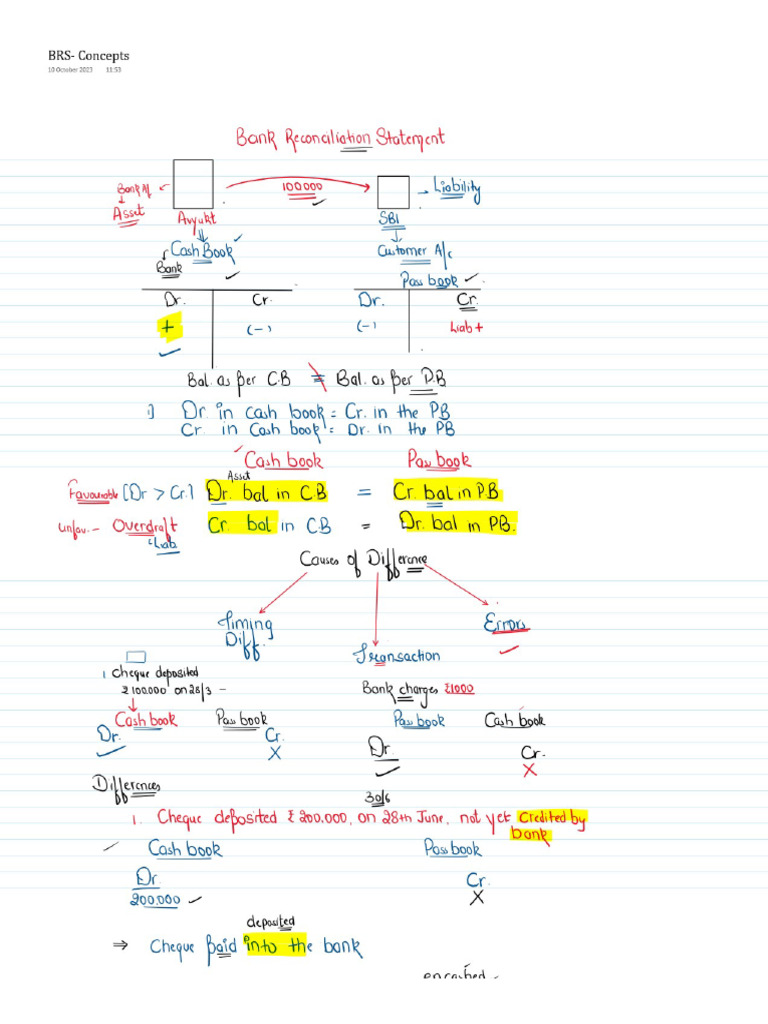 BRS- Concepts
10 October 2023 11:53
Bank Reconciliation Statement
Bank A/c
100000
Liability
Asset
Avyukt
SBI
Cash Book
Customer A/c
Bank
Pass book
Dr. Cr. Dr. Cr.
+ (-) (-) Liab +
Bal. as per C.B = Bal. as per P.B
1) Dr. in cash book = Cr. in the PB
Cr. in Cash book = Dr. in the PB
Cash book Pass book
Asset
Favourable [Dr > Cr.] Dr. bal in C.B = Cr. bal in P.B
Unfav. - Overdraft Cr. bal in C.B = Dr. bal in PB.
Liab
Causes of Difference
Timing Diff.
Transaction
Errors
1 Cheque deposited
₹100.000 on 28/3 -
Bank charges ₹1000
Cash book Pass book Pass book Cash book
Dr. Cr. Dr. Cr.
X X
Differences
30/6
1. Cheque deposited ₹ 200.000, on 28th June, not yet credited by
bank
Cash book Pass book
Dr. Cr.
200.000 X
deposited
⇒ Cheque paid into the bank
encashed